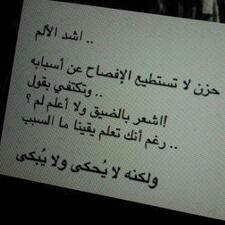 اشد الألم ..
حزن لا تستطيع الإفصاح عن أسبابه
وتكتفي بقول ..
اشعر بالضيق ولا أعلم لم ؟!
رغم أنك تعلم يقينا ما السبب ..
ولكنه لا يُحكى ولا يُبكى